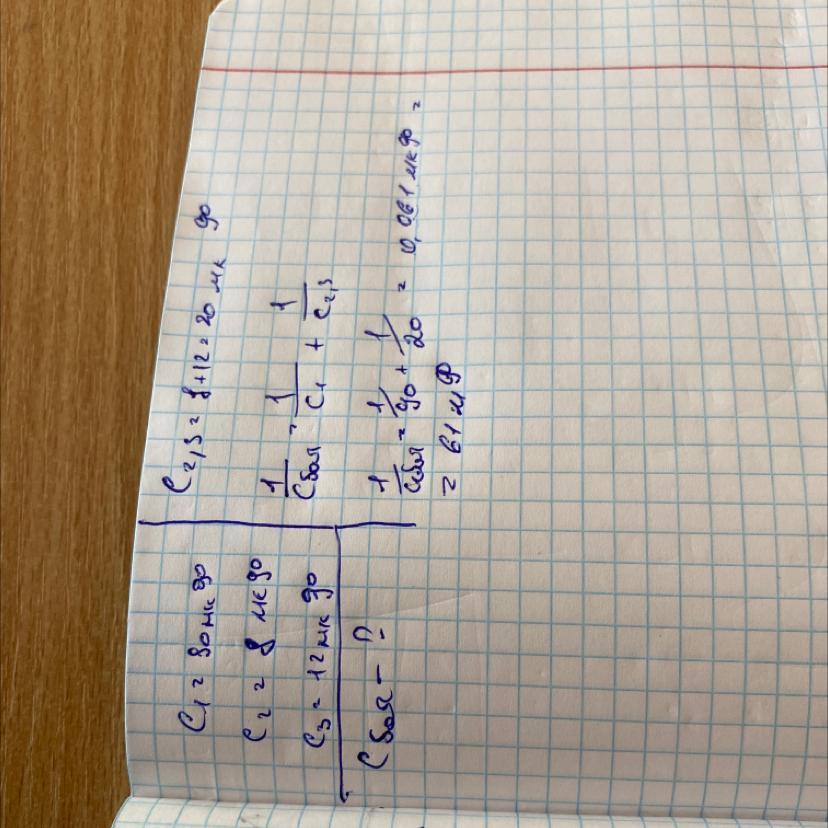 C₁ = 90 мкФ
C₂ = 8 мкФ
C₃ = 12 мкФ
Cбая - ?
C₂,₃ = 8+12 = 20 мк Ф
1/Cбая = 1/C₁ + 1/C₂,₃
1/Cбая = 1/90 + 1/20 = 0,061 мкФ =
= 61 мФ